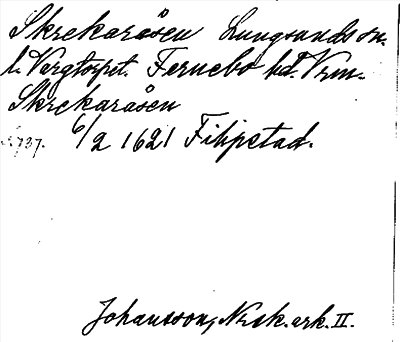 Skrekaråsen Lungsunds sn.
l. Vargtorpet. Fernebo hd. Vrm.
Skrekaråsen
737. 6/2 1621 Filipstad.
Johansson, Norsk. ark. II.